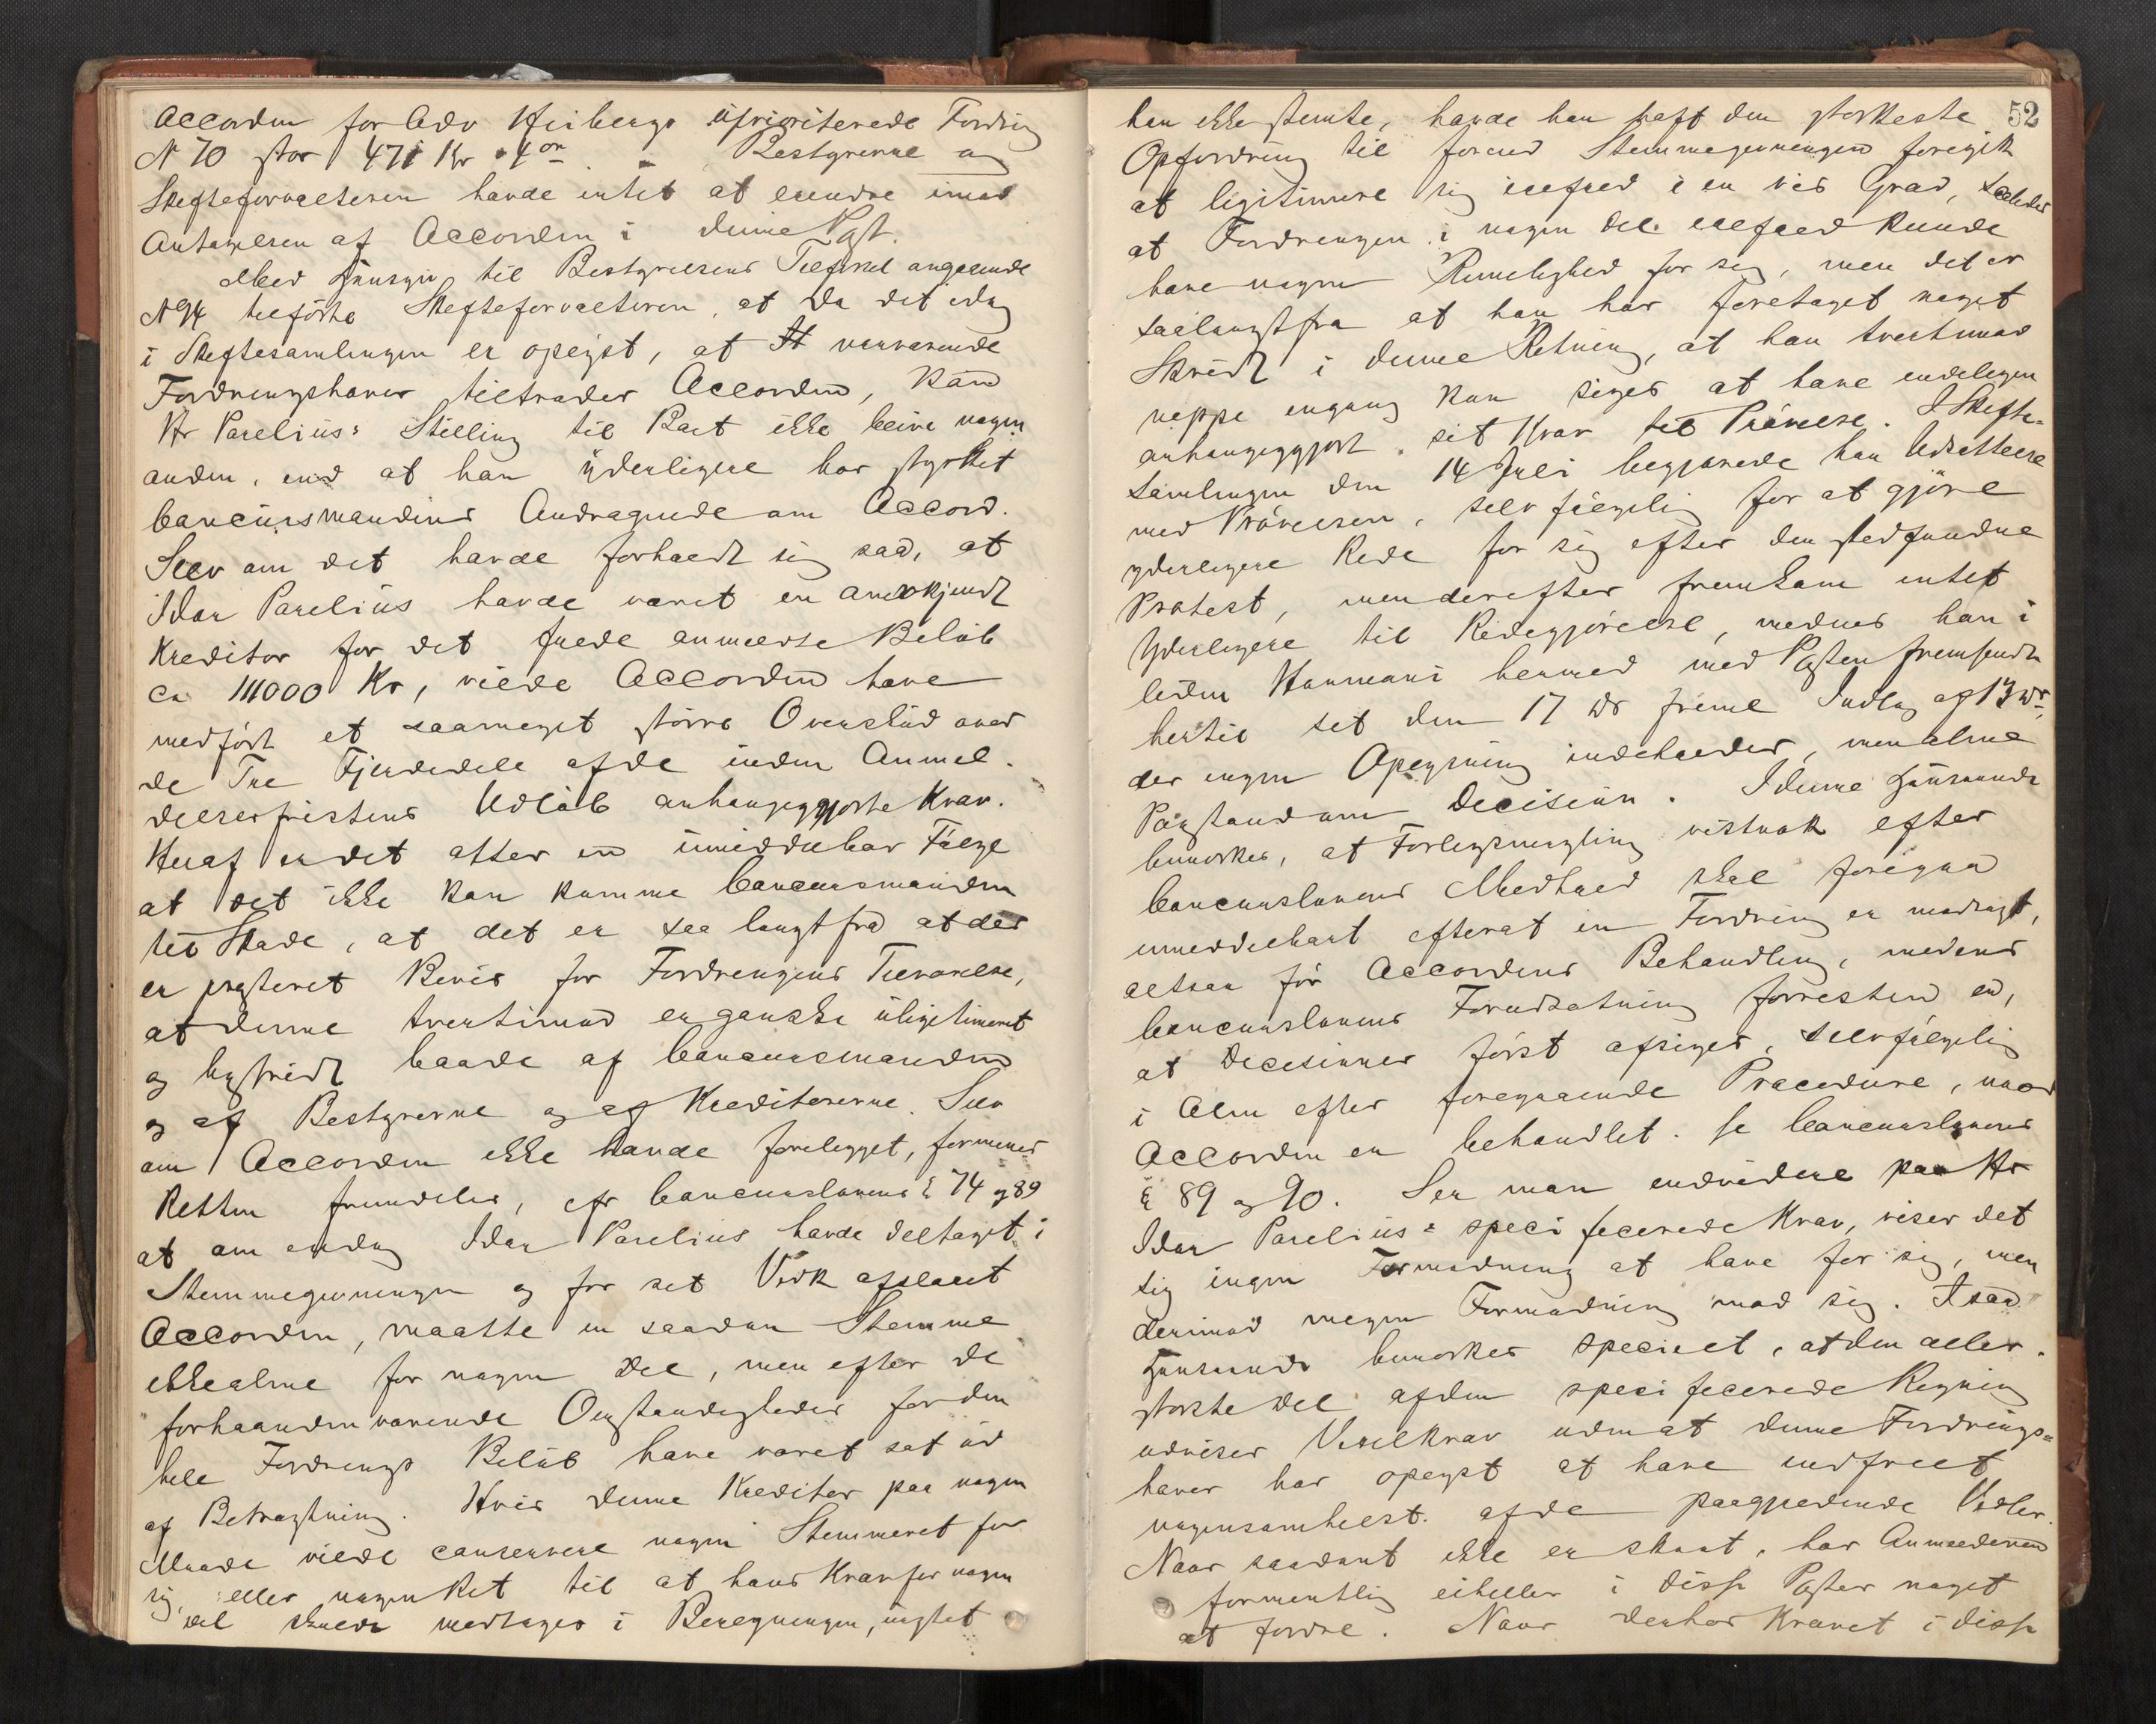 Accorden for Adv Heibergs uprioriterede Fordring
N 70 stor 471 Kr 1 ør. - Bestyrerne og
Skifteforvalteren havde intet at erindre imod
Antagelsen af Accorden i denne Post.
Med Hensyn til Bestyrelsens Tilførsel angaaende
N 94 tilførte Skifteforvalteren, at da det idag
i Skiftesamlingen er oplyst, at H værværende
Fordringshaver tiltræder Accorden, kan
Hr Parelius' Stilling til Boet ikke blive nogen
anden, end at han yderligere har styrket
Concursmandens Andragende om Accord.
Selv om det havde forholdt sig saa, at
Idar Parelius havde været en anerkjendt
Kreditor for det fulde anmeldte Beløb
ca 111000 Kr, vilde Accorden have
medført et saameget større Overskud over
de Tre Fjerdedele af de inden Anmel-
delsesfristens Udløb anhængiggjorte Krav.
Heraf er det atter en umiddelbar Følge
at det ikke kan komme Concursmanden
til Skade, at det er saa langt fra at der
er præsteret Bevis for Fordringens Tilværelse,
at denne tvertimod er ganske ulegitimeret
og bestridt baade af Concursmanden
og af Bestyrerne og af Kreditorerne. Selv
om Accorden ikke havde foreligget, formener
Retten fremdeles, cfr Concurslovens § 74 og 89
at om endog Idar Parelius havde deltaget i
Stemmegivningen og for sit Vedk afslaaet
Accorden, maatte en saadan Stemme
ikke alene for nogen Del, men efter de
forhaandenværende Omstændigheder for den
hele Fordrings Beløb have været sat ud
af Betragtning. Hvis denne Kreditor paa nogen
Maade vilde conservere nogen Stemmeret for
sig, eller nogen Ret til at hans Krav for nogen
Del skulde medtages i Beregningen, uagtet
52
han ikke stemte, havde han havt den stærkeste
Opfordring til forend Stemmegivningen foregik
at legitimere sig ialfald i en vis Grad, saaledes
at Fordringen i nogen Del ialfald kunde
have nogen Rimelighed for sig, men det er
saalangt fra at han har foretaget noget
Skridt i denne Retning, at han tvertimod
neppe engang kan siges at have endeligen
anhængiggjort sit Krav til Prøvelse. I Skifte-
samlingen den 14 Juli begjærede han Udsættelse
med Prøvelsen, selvfølgelig for at gjøre
yderligere Rede for sig efter den stedfundne
Protest, men derefter fremkom intet
Yderligere til Redegjørelse, medens han i
hertil det den 17 ds frem Indlæg af 13 ds,
der ingen Oplysning indeholder, men alene
Paastand om Decision. I denne Henseende
bemærkes, at Forligsmægling vistnok efter
Concurslovens Medhold skal foregaa
umiddelbart efterat en Fordring er modsagt,
altsaa før Accordens Behandling, medens
Concurslovens Forudsætning forresten er,
at Decisioner først afsiges, selvfølgelig
i Alm efter foregaaende Procedure, naar
Accorden er behandlet. se Concurslovens
§ 89 og 90. Ser man endvidere paa Hr
Idar Parelius' specificerede Krav, viser det
sig ingen Formodning at have for sig, men
derimod megen Formodning mod sig. I saa
Henseende bemærkes specielt, at den aller-
største Del af den specificerede Regning
udviser Vexelkrav uden at denne Fordrings-
haver har oplyst at have indfriet
nogensomhelst af de paagjældende Vexler.
Naar saadant ikke er skeet, har Anmelderen
formentlig eiheller i disse Poster noget
at fordre. Naar derhos Kravet i disse